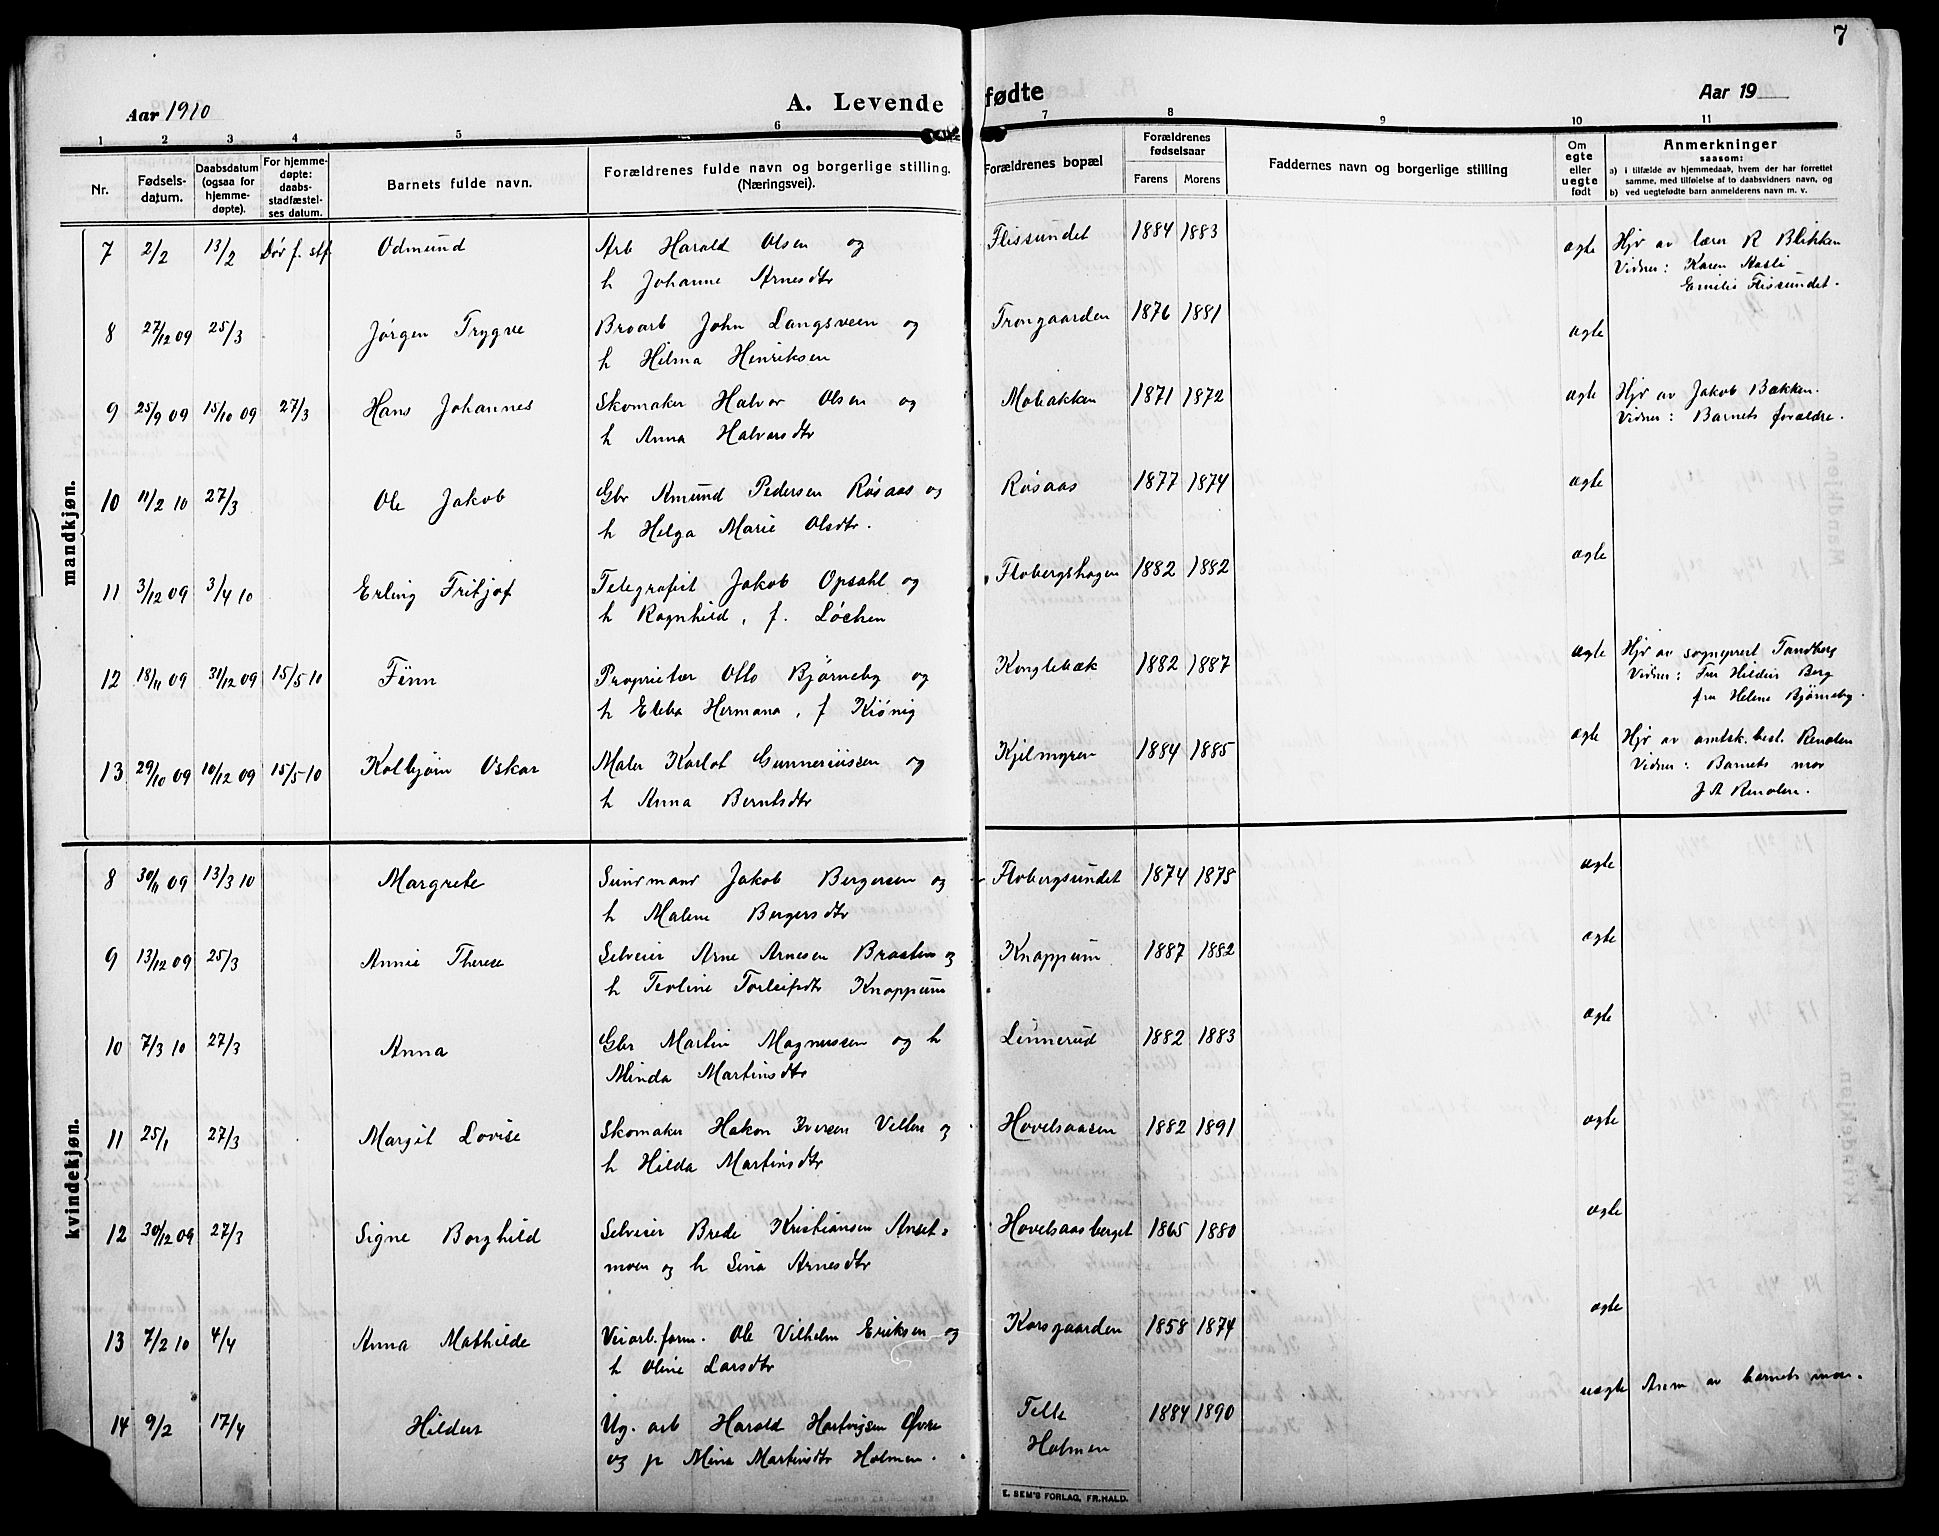 7
Aar 1910
A. Levende fødte
Aar 19
1 2 3 4 5 6 7 8 9 10 11
Nr.
Fødsels-
datum.
Daabsdatum
(ogsaa for
hjemme-
døpte).
For hjemme-
døpte:
daabs-
stadfæstel-
ses datum.
Barnets fulde navn.
Forældrenes fulde navn og borgerlige stilling.
(Næringsvei).
Forældrenes bopæl
Forældrenes
fødselsaar
Farens Morens
Faddernes navn og borgerlige stilling
Om
egte
eller
uegte
født
Anmerkninger
saasom:
a) i tilfælde av hjemmedaab, hvem der har forrettet
samme, med tilføielse af to daabsvidners navn, og
b) ved uegtefødte barn anmelderens navn m. v.
mandkjøn.
7 2/2 13/2 Død f. stf. Odmund Arb Harald Olsen og Flissundet 1884 1883 ægte Hjd av lærer R Blikken
h Johanne Arnesdtr Vidner: Karen Aasli
Emilie Flissundet.
8 27/12 09 25/3 Jørgen Trygve Broarb John Langsveen og Trongaarden 1876 1881 ægte
h Hilma Henriksen
9 25/9 09 15/10 09 27/3 Hans Johannes Skomaker Halvor Olsen og Mobakken 1871 1872 ægte Hjd av Jakob Bakken.
h Anna Halvorsdtr Vidner: Barnets forældre.
10 11/2 10 27/3 Ole Jakob Gbr Amund Pedersen Rosaas og Rosaas 1877 1874 ægte
h Helga Marie Olsdtr.
11 3/12 09 3/4 10 Erling Fritjof Telegrafist Jakob Opsahl og Flobergshagen 1882 1882 ægte
h Ragnhild, f. Løchen
12 18/11 09 31/12 09 15/5 10 Finn Proprietær Otto Bjørneby og Konglebæk 1882 1887 ægte Hjd av sogneprest Tandberg
h Ebba Hermana, f Kiønig Vidner: Fru Hildur Berg
fru Helene Bjørneby.
13 29/10 09 10/12 09 15/5 10 Kolbjørn Oskar Maler Karlot Gunneriussen og Kjelmyren 1884 1885 ægte Hjd av amtsk.best. Renolen
h Anna Berntsdtr Vidner: Barnets mor
J A Renolen.
kvindekjøn.
8 30/11 09 13/3 10 Margrete Sundmand Jakob Bergersen og Flobergsundet 1874 1875 ægte
h Malene Bergersdtr
9 13/12 09 25/3 Annie Therese Selveier Arne Arnesen Braaten og Knappum 1887 1882 ægte
h Teoline Torleifsdtr Knappum
10 7/3 10 27/3 Anna Gbr Martin Magnussen og h Linnerud 1882 1883 ægte
Minda Martinsdtr
11 25/1 27/3 Margit Lovise Skomaker Hakon Iversen Velten og Hovelsaasen 1882 1891 ægte
h Hilda Martinsdtr
12 30/12 09 27/3 Signe Borghild Selveier Brede Kristiansen Anset- Hovelsaasberget 1865 1880 ægte
moen og h Lina Arnesdtr
13 7/2 10 4/4 Anna Mathilde Veiarb.form. Ole Vilhelm Eriksen og Korsgaarden 1858 1874 ægte
h Oline Larsdtr
14 9/2 17/4 Hildur Ug. arb Harald Hartvigsen Øvre Telle 1884 1890 uægte Anm av barnets mor.
og p Mina Martinsdtr Holmen. Holmen
E. SEM'S FORLAG, FR.HALD.